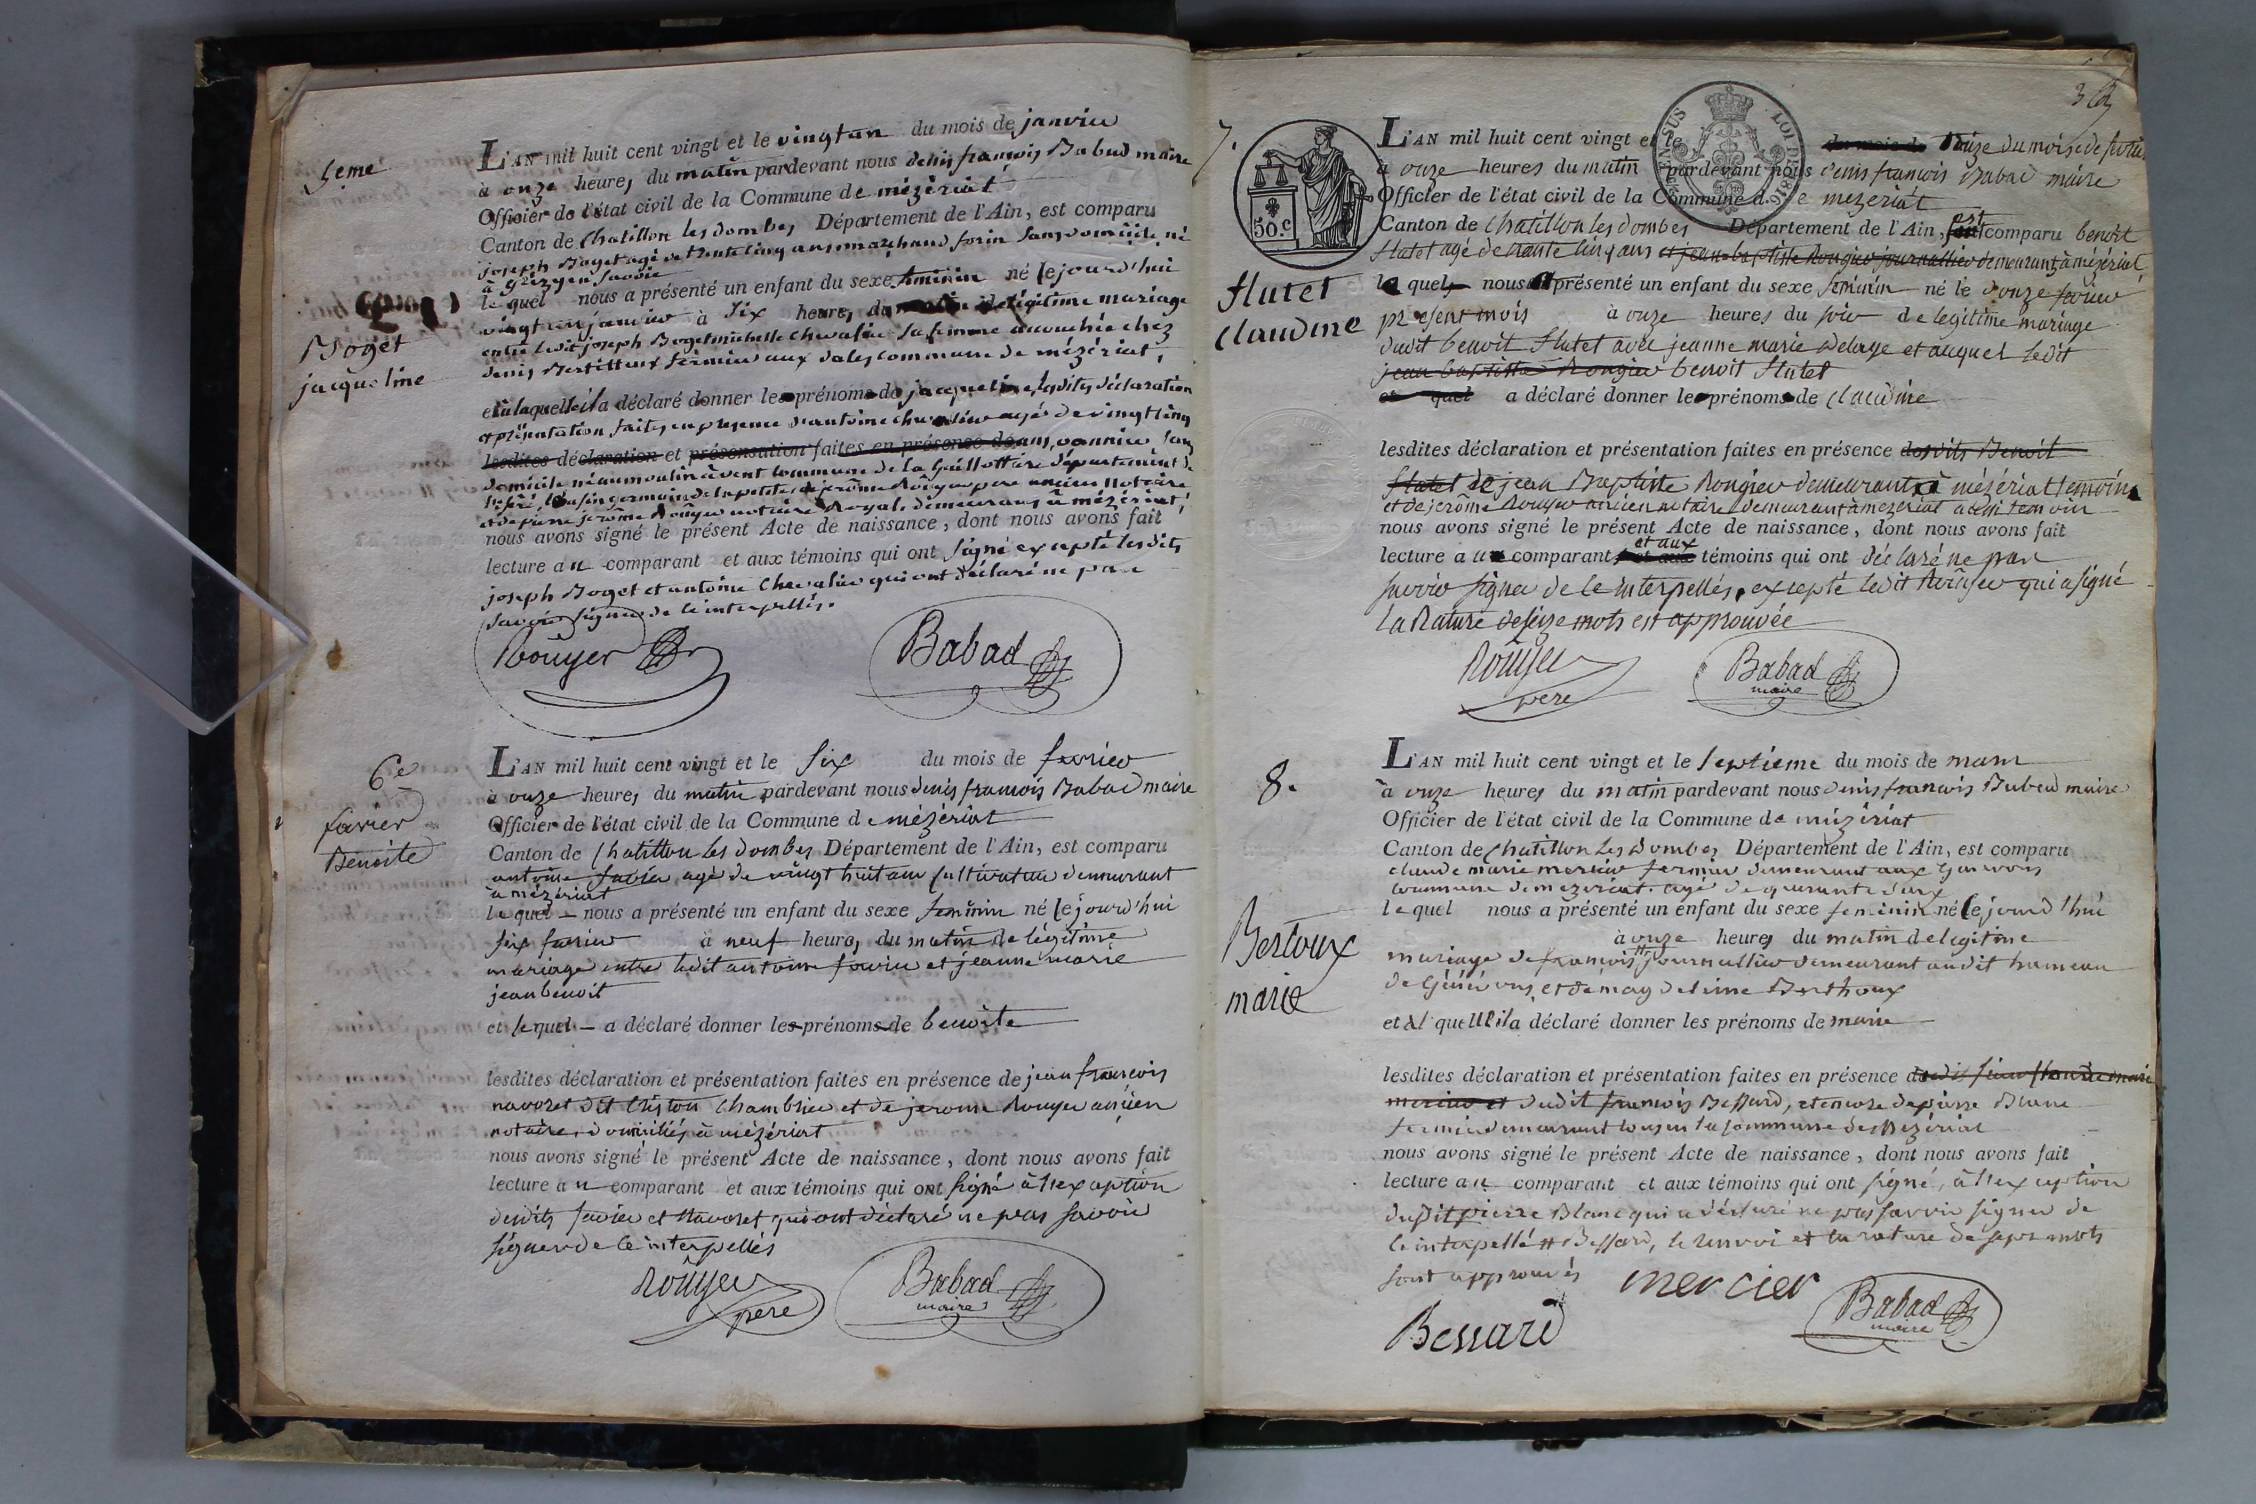 5eme
Boget
jacqueline
L'AN mil huit cent vingt et le vingt un du mois de janvier
à onze heures du matin pardevant nous denis francois Babad maire
Officier de l'état civil de la Commune de mézèriat
Canton de Chatillon les dombes Département de l'Ain, est comparu
joseph Boget agé de trente cinq ans marchand forin sans domicile né
à grézy en Savoie
lequel nous a présenté un enfant du sexe feminin né le jourd'hui
vingt un janvier à six heures du matin de légitime mariage
entre ledit joseph Boget michelle chevalier sa femme accouchée chez
denis fermier aux sales commune de mézériat,
et à laquelle il a déclaré donner le prénom de jacqueline, lesdites déclaration
et présentation faites en presence d'antoine chevalier agé de vingt cinq
lesdites déclaration et présentation faites en présence de ans, vannier sans
domicile né au moulin à vent commune de la Guillottiere département de
cousin germain de la petite, de jerôme Roûyer pere ancien Notaire
et de pierre jerôme Roûyer notaire Royal, demeurans à mézériat,
nous avons signé le présent Acte de naissance, dont nous avons fait
lecture au comparant et aux témoins qui ont signé excepté lesdits
joseph Boget et antoine Chevalier qui ont déclaré ne pas
savoir signer de ce interpellés.
Roûyer Babad
6e
favier
Benoite
L'AN mil huit cent vingt et le six du mois de fevrier
à onze heures du matin pardevant nous denis francois Babad maire
Officier de l'état civil de la Commune de mézériat
Canton de Chatillon les dombes Département de l'Ain, est comparu
antoine favier agé de vingt huit ans cultivateur demeurant
à mézériat
lequel nous a présenté un enfant du sexe feminin né le jourd'hui
six fevrier à neuf heures du matin de légitime
mariage entre ledit antoine favier et jeanne marie
jeanbenoit
et lequel a déclaré donner les prénoms de benoite
lesdites déclaration et présentation faites en présence de jean francois
navoret dit chambrier et de jerome Rouyer ancien
notaire, domiciliés à mézériat
nous avons signé le présent Acte de naissance, dont nous avons fait
lecture au comparant et aux témoins qui ont signé à l'exception
desdits favier et Navoret qui ont déclaré ne pas savoir
signer de ce interpellés
Roûyer pere Babad maire
7.
50.c
LOI DE 1816
flutet
claudine
L'AN mil huit cent vingt et le du mois de treize du mois de fevrier
à onze heures du matin pardevant nous denis francois Babad maire
Officier de l'état civil de la Commune de mezériat
Canton de Chatillon les dombes Département de l'Ain, est comparu benoit
flutet agé de trente cinq ans et jean baptiste Rongier journallier demeurant à mézériat
lequel nous a présenté un enfant du sexe feminin né le douze fevrier
present mois à onze heures du soir de legitime mariage
dudit benoit flutet avec jeanne marie Delaye et auquel ledit
jean baptiste Rongier benoit flutet
et quel a déclaré donner le prénom de claudine
lesdites déclaration et présentation faites en présence desdits Benoit
flutet de jean Baptiste Rongier demeurant à mézériat temoin
et de jerôme Rouyer ancien notaire demeurant à mezériat aussi temoin
nous avons signé le présent Acte de naissance, dont nous avons fait
lecture au comparant et aux témoins qui ont déclaré ne pas
savoir signer de ce interpellés, excepté ledit Roûyer qui a signé
la Rature de seize mots est approuvée
Roûyer pere Babad maire
8.
Bertoux
marie
L'AN mil huit cent vingt et le septieme du mois de mars
à onze heures du matin pardevant nous denis francois Babad maire
Officier de l'état civil de la Commune de mézériat
Canton de Chatillon les Dombes Département de l'Ain, est comparu
claude marie mercier fermier demeurant aux
commune de mezeriat agé de quarante deux
lequel nous a présenté un enfant du sexe feminin né le jourd'hui
à onze heures du matin de legitime
mariage de francois # journallier demeurant audit hameau
de et de magdeleine Berthoux
et laquelle il a déclaré donner les prénoms de marie
lesdites déclaration et présentation faites en présence dudit sieur claude marie
mercier et dudit francois Bessard, et encore de pierre Blanc
fermier demeurant tous en la commune de Mezériat
nous avons signé le présent Acte de naissance, dont nous avons fait
lecture au comparant et aux témoins qui ont signé, à l'exception
dudit pierre Blanc qui a déclaré ne pas savoir signer de
ce interpellé # Bessard, le renvoi et la rature de sept mots
sont approuvés mercier Babad maire
Bessard